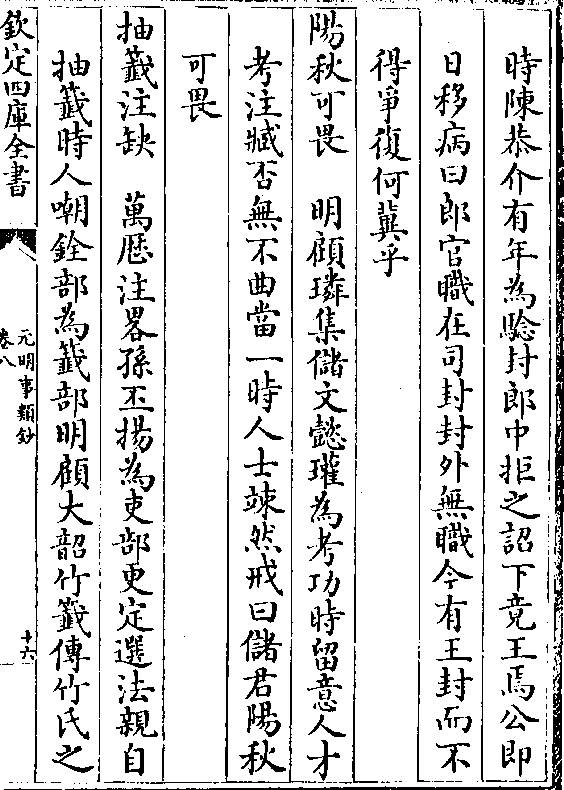 時陳恭介有年為驗封郎中拒之詔下竟王焉公即
日移病曰郎官職在司封封外無職今有王封而不
得爭復何冀乎
陽秋可畏　明顧璘集儲文懿瓘為考功時留意人才
考注臧否無不曲當一時人士竦然戒曰儲君陽秋
可畏
抽籤注缺　萬歷注畧孫丕揚為吏部更定選法親自
抽籤時人嘲銓部為籤部明顧大韶竹籤傳竹氏之
欽定四庫全書
元明事類鈔
卷八
十六